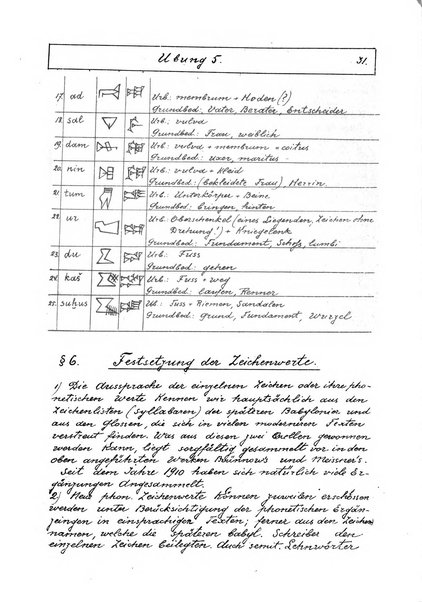 Übung 5. 31.
17. ad Urb: membrum + Hoden (?)
Grundbed: Vater, Berater, Entscheider
18. sal Urb.: vulva
Grundbed: Frau, weiblich
19. dam Urb: vulva + membrum = coitus
Grundbed: uxor, maritus
20. nin Urb.: vulva + Kleid
Grundbed: (bekleidete Frau), Herrin
21. tum Urb: Unterkörper + Beine
Grundbed: bringen, hinten
22. ur Urb: Oberschenkel (eines Liegenden, Zeichen ohne
Drehung!) + Kniegelenk
Grundbed: Fundament, Schoß, lumbi
23. du Urb: Fuss
Grundbed: gehen
24. kaš Urb: Fuss + weg
Grundbed: laufen, Renner
25. suhus Ub: Fuss + Riemen, Sandalen
Grundbed: grund, Fundament, Wurzel
§ 6. Festsetzung der Zeichenwerte.
1) Die Aussprache der einzelnen Zeichen oder ihre pho-
netischen Werte kennen wir hauptsächlich aus den
Zeichenlisten (Syllabaren) der späteren Babylonier und
aus den Glossen, die sich in vielen moderneren Texten
verstreut finden. Was aus diesen zwei Quellen gewonnen
werden kann, liegt sorgfältig gesammelt vor in den
oben angeführten Werken Brünnow's und Meissner's.
Seit dem Jahre 1910 haben sich natürlich viele Er-
gänzungen angesammelt.
2) Neue phon. Zeichenwerte können zuweilen erschlossen
werden unter Berücksichtigung der phonetischen Ergän-
zungen in einsprachigen Texten; ferner aus den Zeichen-
namen, welche die späteren babyl. Schreiber den
einzelnen Zeichen beilegten. Auch semit. Lehnwörter